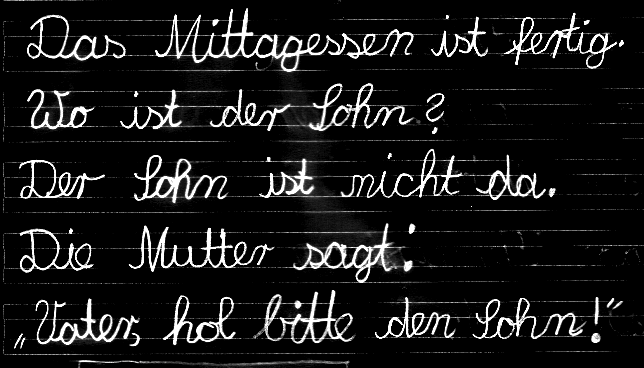 Das Mittagessen ist fertig.
Wo ist der Sohn?
Der Sohn ist nicht da.
Die Mutter sagt:
„Vater, hol bitte den Sohn!“